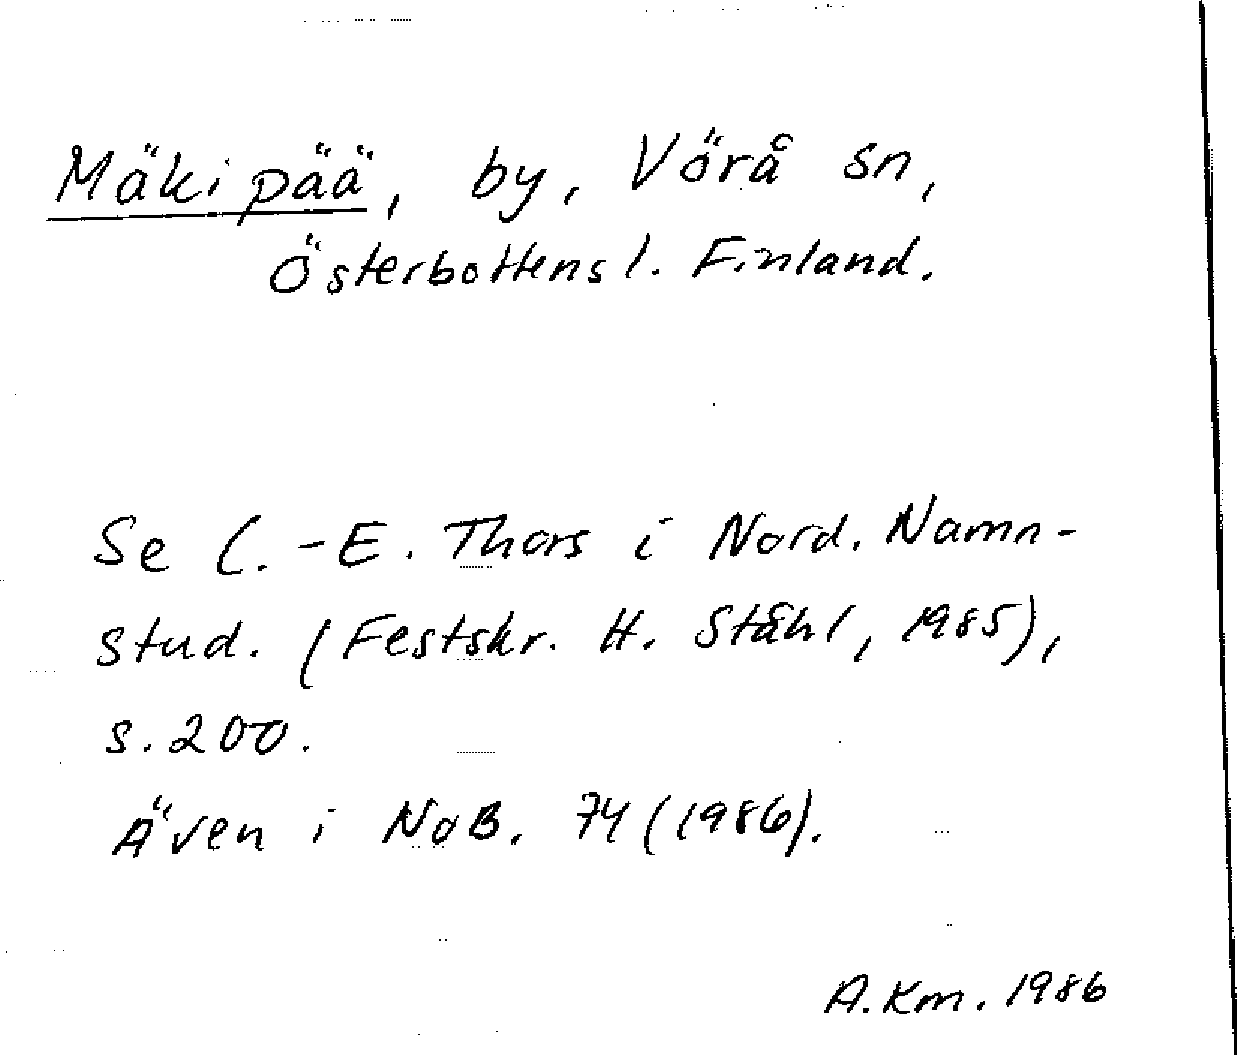 Mäkipää, by, Vörå sn,
Österbottens l. Finland.
Se C.-E. Thors i Nord. Namn-
stud. (Festskr. H. Ståhl, 1985),
s. 200.
Även i NoB. 74 (1986).
A. Km. 1986